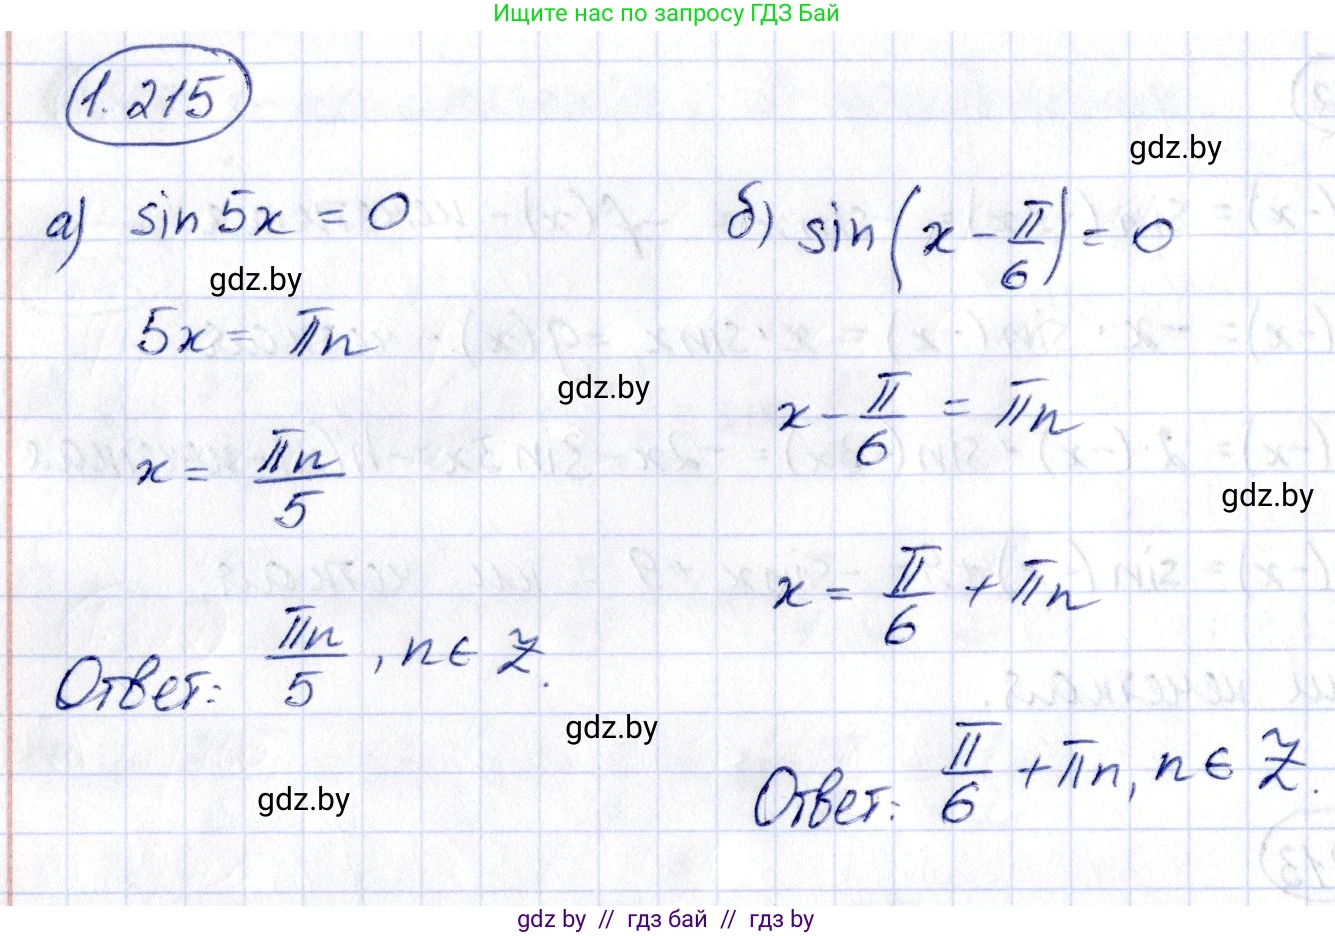 Ищите нас по запросу ГДЗ Бай
1.215
gdz.by
а) sin 5x = 0
gdz.by
5x = πn
x = πn/5
Ответ: πn/5, n ∈ Z.
gdz.by
б) sin(x - π/6) = 0
gdz.by
x - π/6 = πn
gdz.by
x = π/6 + πn
gdz.by
Ответ: π/6 + πn, n ∈ Z.
gdz.by
gdz.by // гдз бай // гдз by